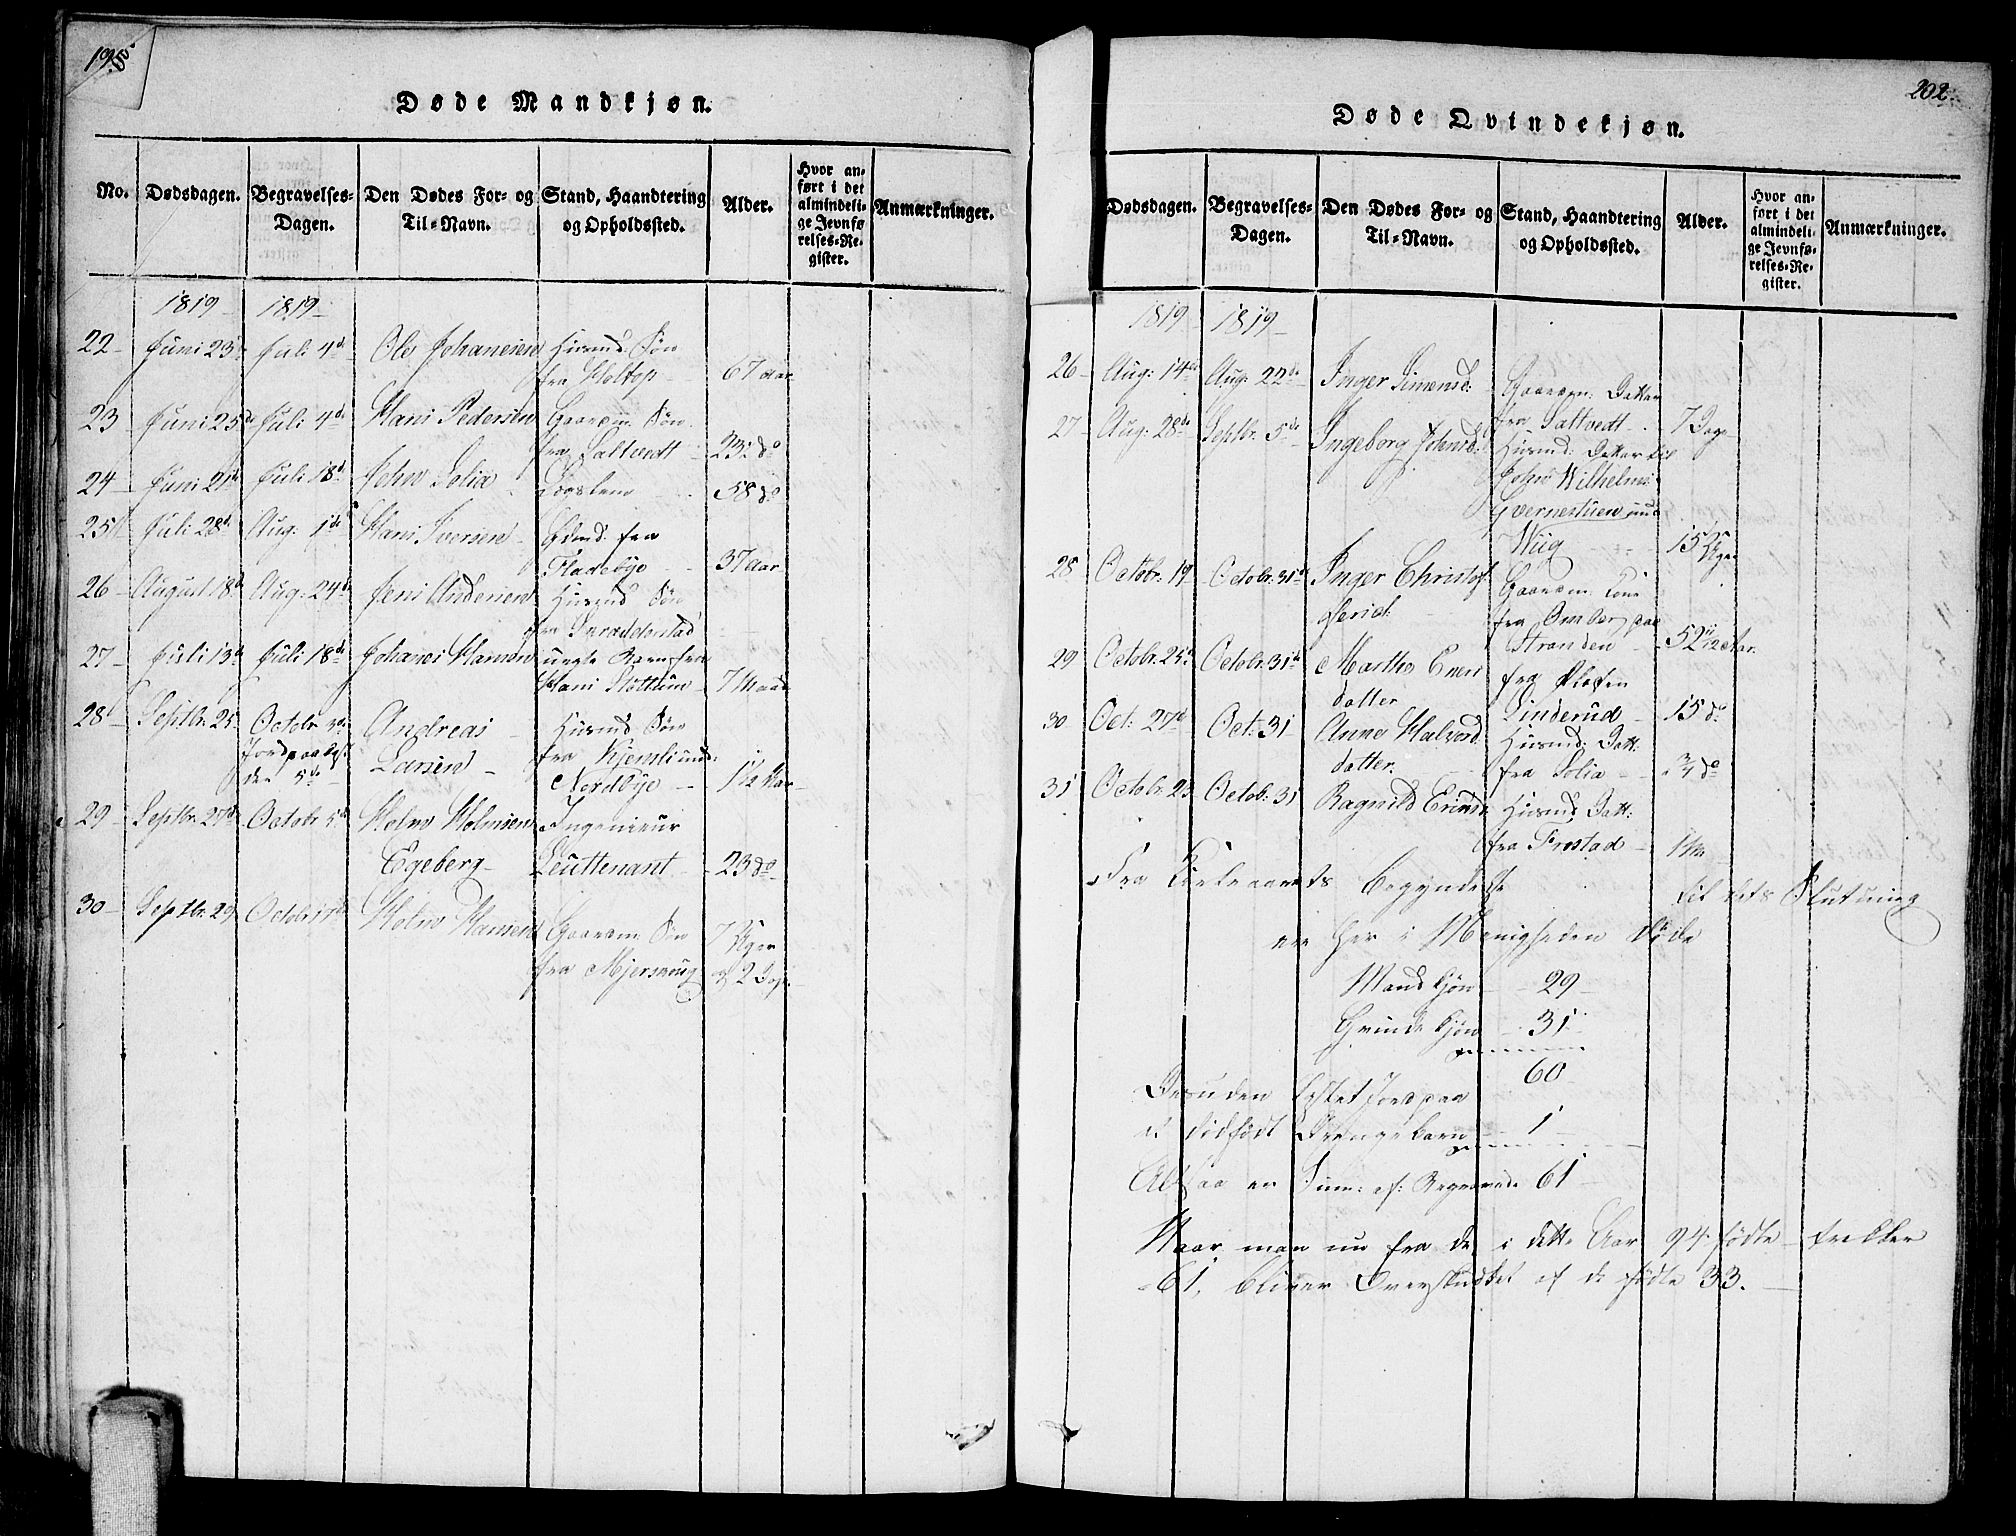 195
Døde Mandkjøn.
No. Dødsdagen. Begravelses-Dagen. Den Dødes For- og Til-Navn. Stand, Haandtering og Opholdssted. Alder. Hvor anført i det almindelige Jevnførelses-Register. Anmærkninger.
1819 1819
22 Juni 23 Juli 4d Ole Johanesen Husmd: Søn
fra Holtop 67 aar
23 Juni 25d Juli 4d Hans Pedersen Gaardm: Søn
fra Saltvedt 23½ do
24 Juni 21d Juli 18d John Solia 58 do
25 Juli 28d Aug: 1d Hans Iversen fra
Fladebye 37 aar
26 August 18d Aug: 24d Jens Andersen Husmd Søn
fra
27 Juli 13d Juli 18d Johanes Hansen uegte Barn fra
7 Maan
28 Septbr. 25 Octobr Andreas Husmd Søn
Jordpaakast fra Kjensli und:
den 5d Larsen Nordbye 1½ Aar
29 Septbr. 27d Octobr 5d Holm Holmsen Ingenieur
Egeberg Leuttenant 23 do
30 Septbr. 29 Octobr 17d Holm Hansen Gaardm: Søn 7 Uger
fra Mjerskoug og 2 Dage
202
Døde Qvindekjøn.
Dødsdagen. Begravelses-Dagen. Den Dødes For- og Til-Navn. Stand, Haandtering og Opholdssted. Alder. Hvor anført i det almindelige Jevnførelses-Register. Anmærkninger.
1819 1819
26 Aug: 14d Aug: 22d Inger Simensd: Gaardm: Datter
fra Saltvedt 7 Dage
27 Aug: 28d Septbr. 5d Ingeborg Johnsd: Husmd: Datter til
John Wilhelmsen
Qvernestuen und
Wiig 15 Uger
28 Octobr. 19 Octobr. 31d Inger Christof Gaardm: Kone
fersd: fra
Stranden 52 Aar.
29 Octobr. 25d Octobr. 31d Marthe Evens
datter fra Pladsen
Linderud 15 do
30 Oct: 27d Oct: 31 Anne Halvords Husmd: Datt:
datter. fra Solia ¾ do
31 Octobr. 23 Octob: 31 Ragnild Husmd Datt:
fra Frestad
Fra Kirkeaarets Begyndelse til dets Slutning
ere her i Menigheden døde
Mandkjøn 29
Qvindekjøn 31
60
Desuden kastet Jord paa
et dødfødt Drengebarn 1
Altsaa en Sum: af: Begravede 61
Naar man nu fra de i dette Aar 94 fødte trekker
61, bliver Overskuddet af de fødte 33.